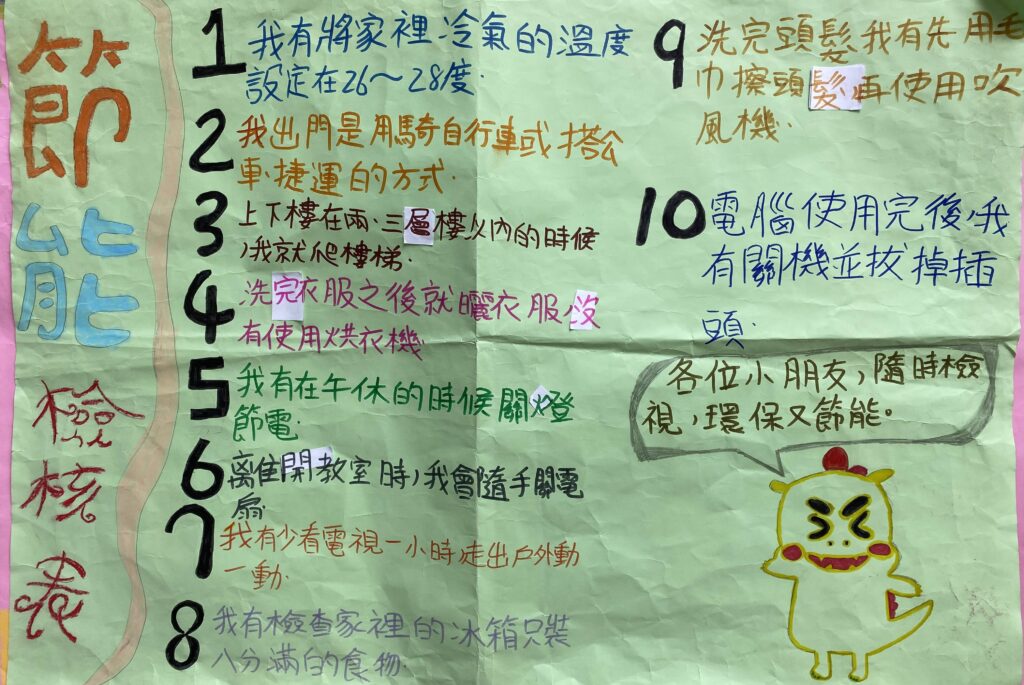 節能檢核表
1 我有將家裡冷氣的溫度
設定在26～28度.
2 我出門是用騎自行車或搭公
車.捷運的方式.
3 上下樓在兩.三層樓以內的時候
,我就爬樓梯.
4 洗完衣服之後就曬衣服,沒
有使用烘衣機.
5 我有在午休的時候關燈
節電.
6 离隹開教室時,我會隨手關電
扇.
7 我有少看電視一小時,走出戶外動
一動.
8 我有檢查家裡的冰箱只裝
八分滿的食物.
9 洗完頭髮,我有先用毛
巾擦頭髮,再使用吹
風機.
10 電腦使用完後,我
有關機並拔掉插
頭.
各位小朋友,隨時檢
視,環保又節能。